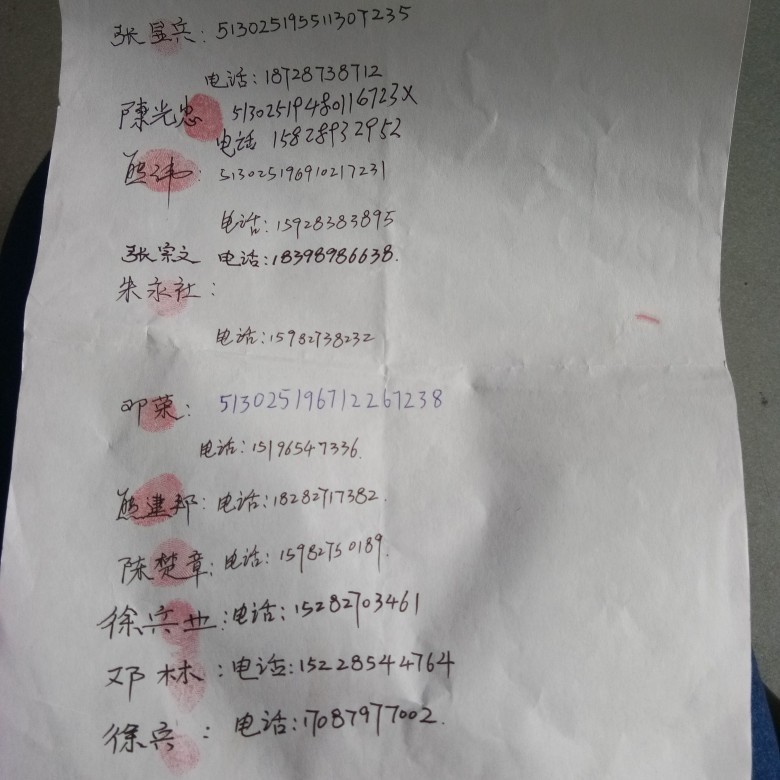 张显兵：513025195511307235
电话：18728738712
陳光忠 51302519480116723X
电话 15828932952
熊纬：513025196910217231
电话：15928383895
张宗文 电话：18398986638.
朱永社：
电话：15982738232
邓荣：513025196712267238
电话：15196547336.
熊建邦：电话：18282717382.
陈楚章：电话：15982750189.
徐兵业：电话：15282703461
邓林：电话：15228544764
徐兵：电话：17087977002.